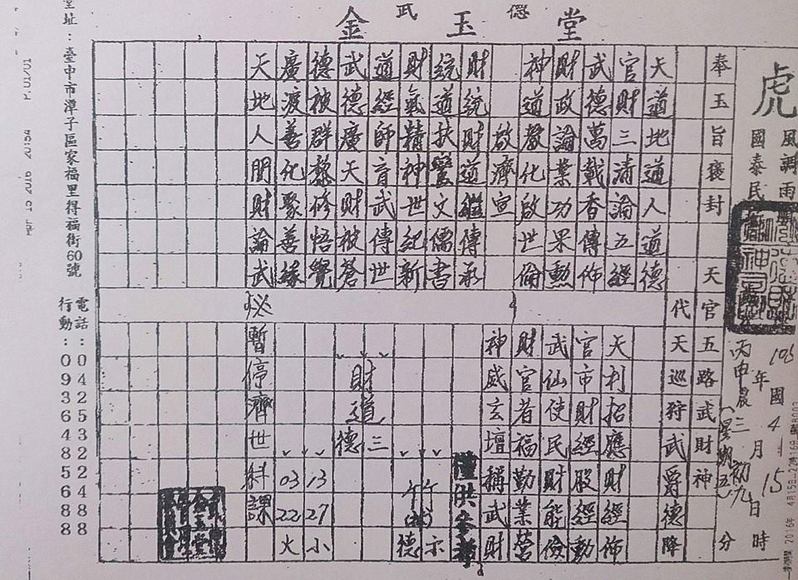 武德
金玉堂
虎
風調雨
國泰民
105年國4月15日時分
丙申農三初九
(星期五)
奉玉旨褒封 天官五路武財神
代天巡狩武爵德降
天道地道人道德
官財三清論五經
武德萬載香傳佈
財政論業功果勳
神道教化啟世倫
啟濟宣
財統財道繼傳承
統道扶鸞文儒書
財氣精神世紀新
道經師育武傳世
武德廣天財被蒼
德被群黎修悟覺
廣渡善化聚善緣
天地人間財論武
天利招應財經佈
官市財經股經動
武仙使民財能儉
財官者福勤業營
神威玄壇稱武財
僅供參考
示
德
三
財道
德
13
27
小
03
22
火
祕
暫停濟世科課
金玉堂
堂址：臺中市潭子區家福里得福街60號
電話：
行動：